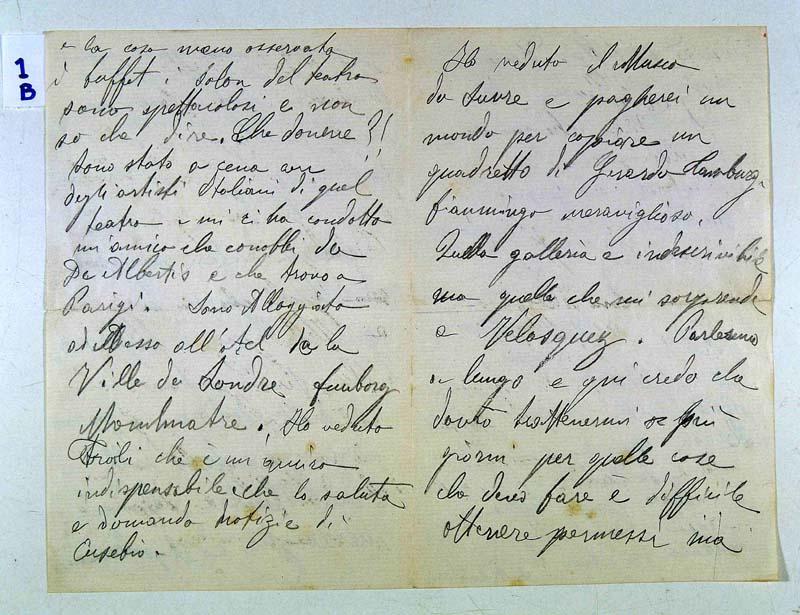 1
B
e la cosa meno osservata
è buffet i Salon del teatro
sono spettacolosi e non
so che dire. Che donene?!!
Sono stato a cena con
degli artisti Italiani di quel
teatro e mi ci ha condotto
un'amico che conobbi da
De Albertis e che trovo a
Parigi. Sono Alloggiato
adesso all'otel de la
Ville de Londre fauborg
Monmatre. Ho veduto
che è un'amico
indispensabile che lo saluta
e domanda notizie di
Eusebio.
Ho veduto il Museo
du Luvre e pagherei un
mondo per copiare un
quadretto di Gerardo
fiammingo meraviglioso.
Tutta galleria e indescrivibile
ma quello che mi sorprende
e Velasquez. Parleremo
a lungo e qui credo che
dovrò trattenermi più
giorni per quelle cose
che devo fare è difficile
ottenere permessi ma